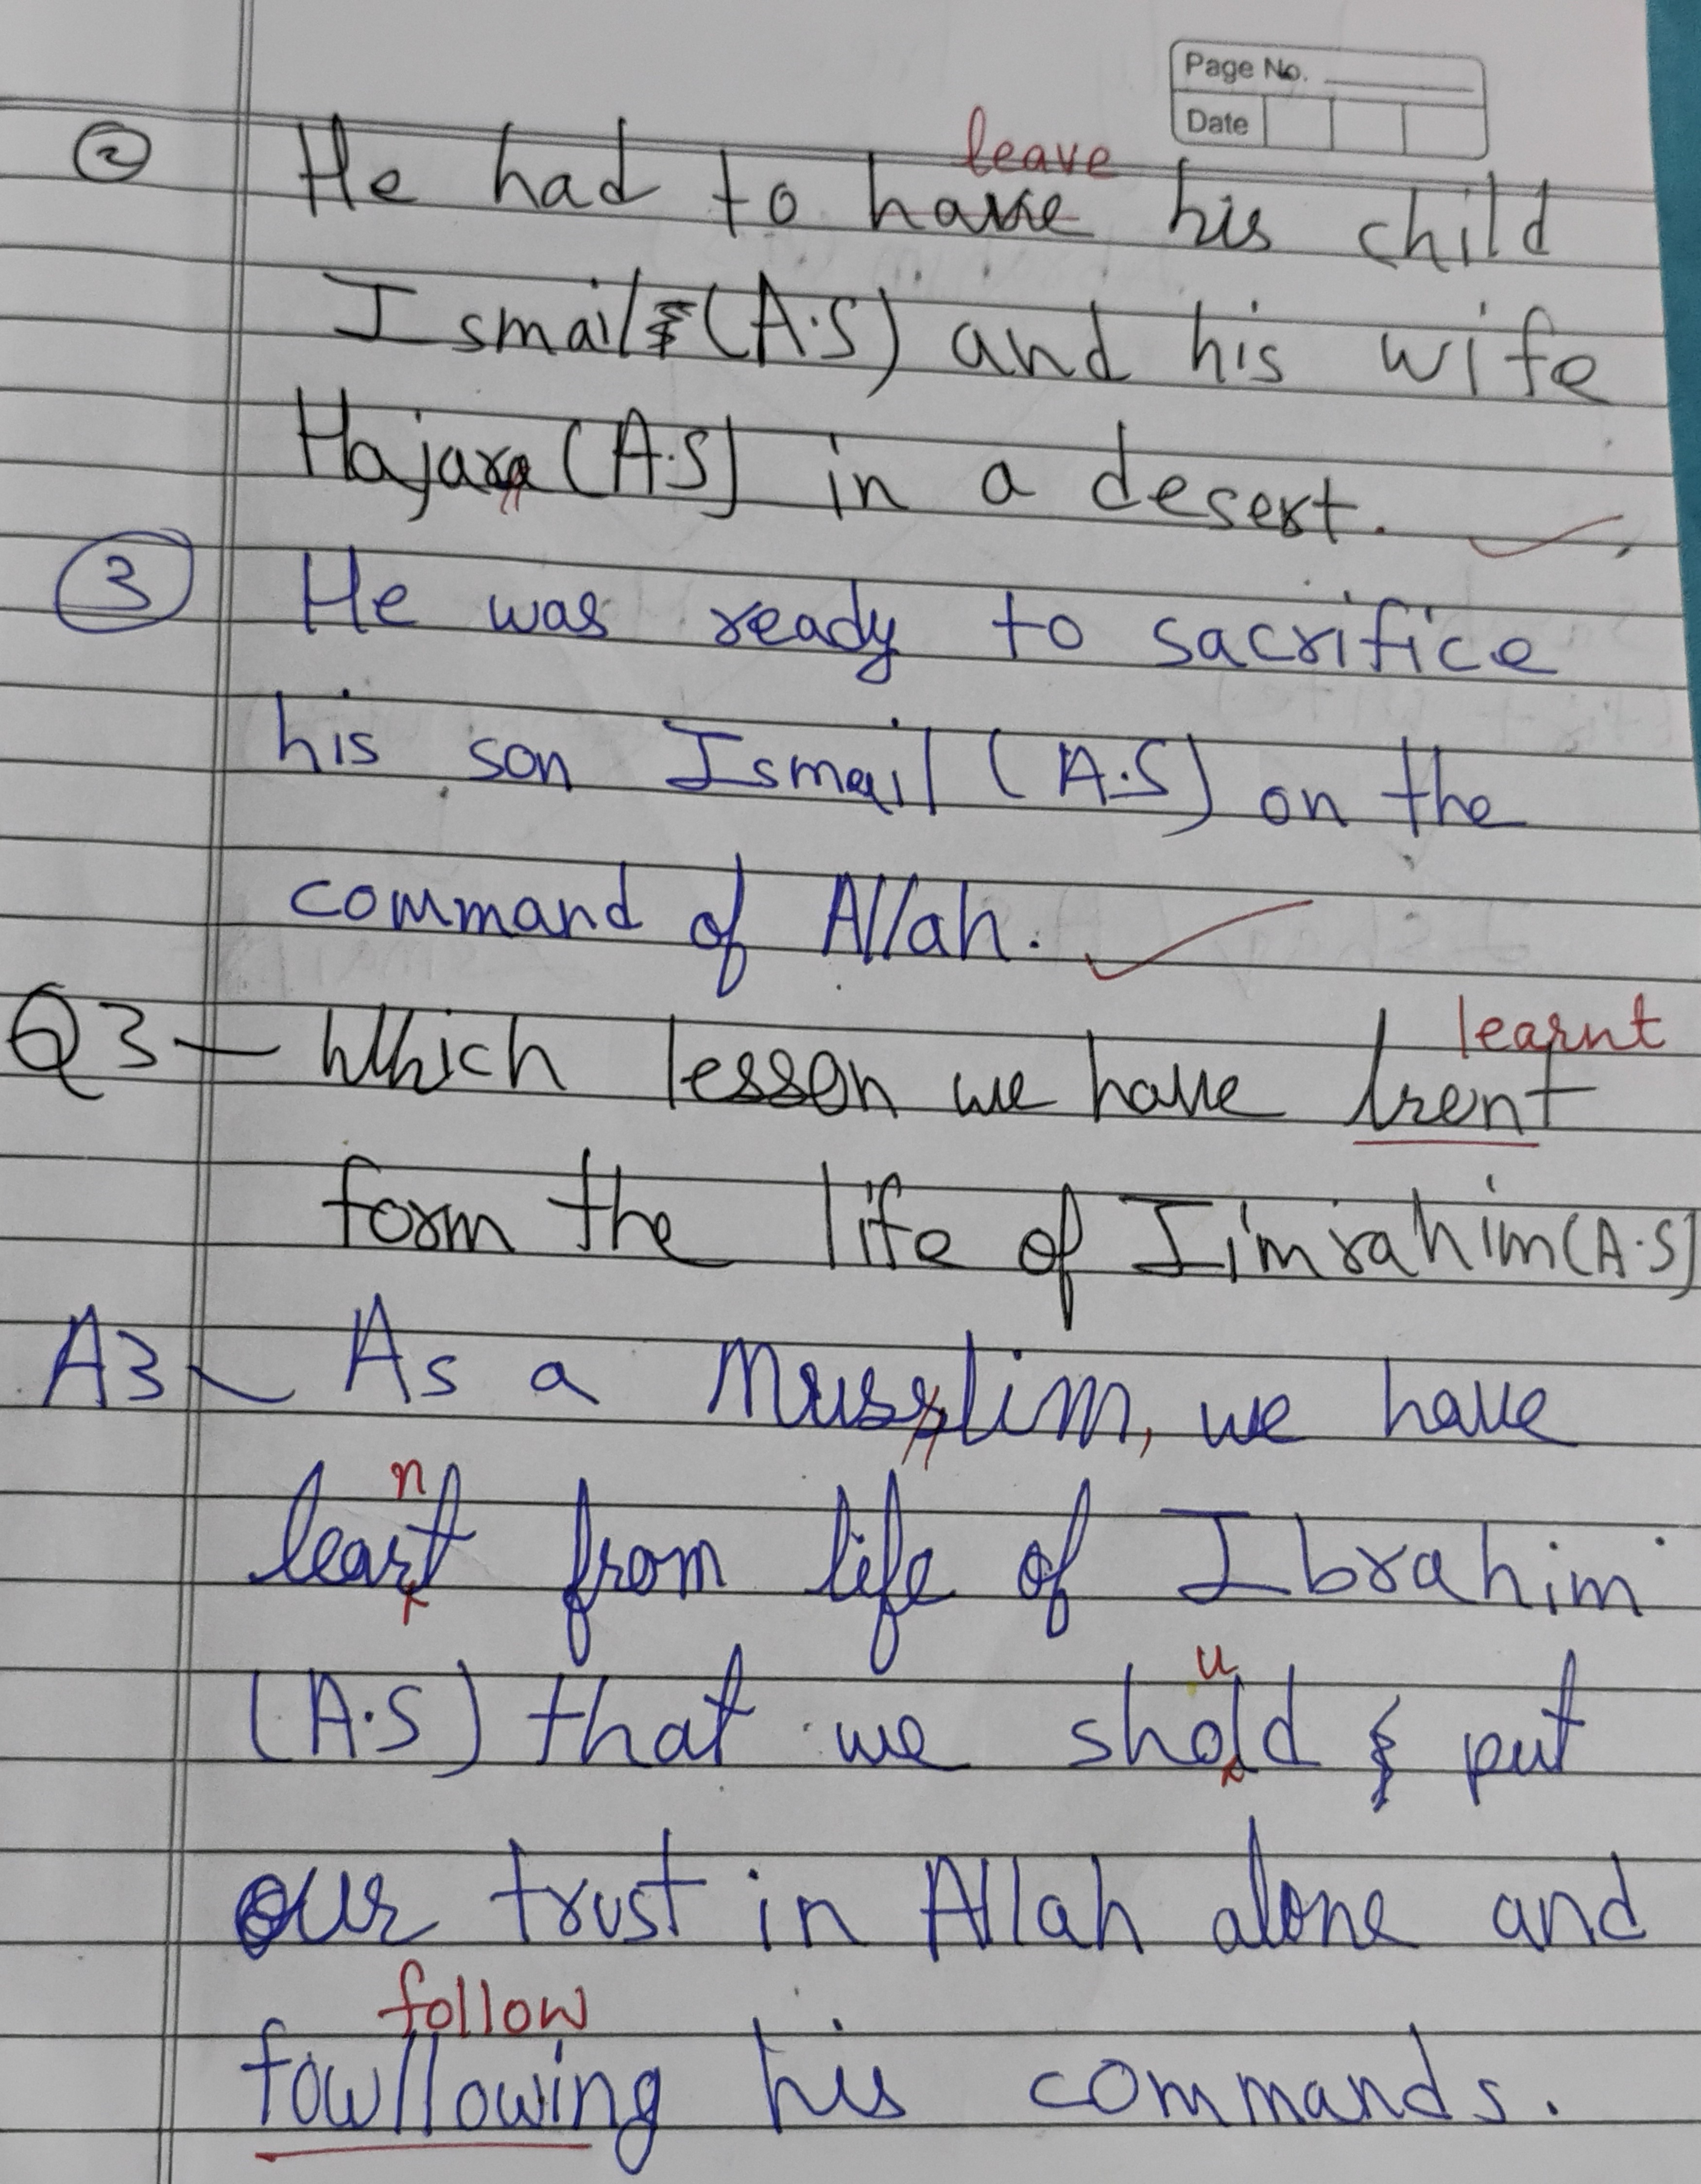 Page No.
Date
leave
② He had to have his child
Ismail (A.S) and his wife
Hajara (A.S) in a desert.
③ He was ready to sacrifice
his son Ismail (A.S) on the
command of Allah.
learnt
Q3 — Which lesson we have lrent
form the life of Iimrahim (A.S)
A3 — As a Musslim, we have
n
leart from life of Ibrahim
u
(A.S) that we shold & put
our trust in Allah alone and
follow
fowllowing his commands.